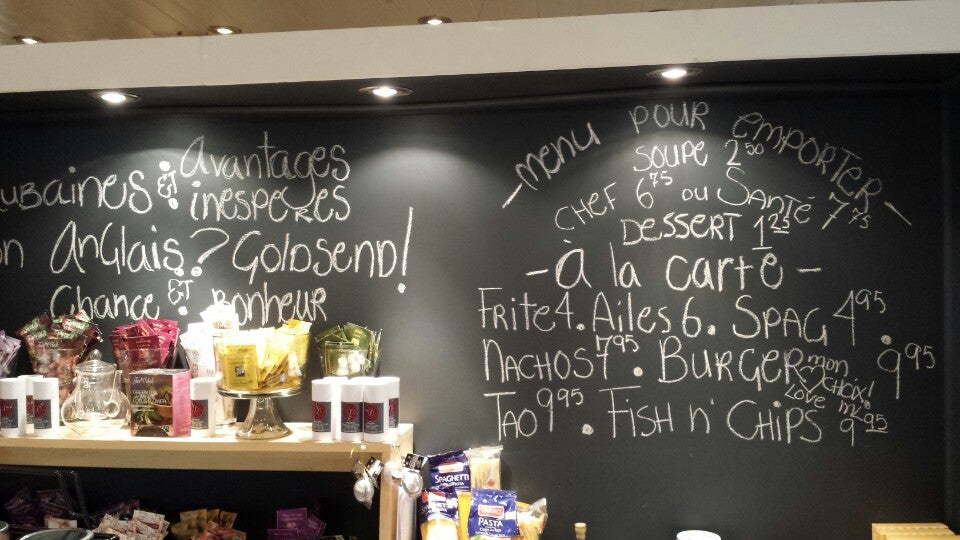 Avantages
ubaines & inespérés
on Anglais? Godsend!
Chance et Bonheur
- menu pour emporter -
soupe 2.50
chef 6.75 ou Santé 7.75
dessert 1.25
- à la carte -
Frite 4. Ailes 6. Spag 4.95
Nachos 7.95. Burger mon choix! 9.95
Love mi.
Tao 9.95. Fish n' Chips 9.95
SPAGHETTI
PASTA